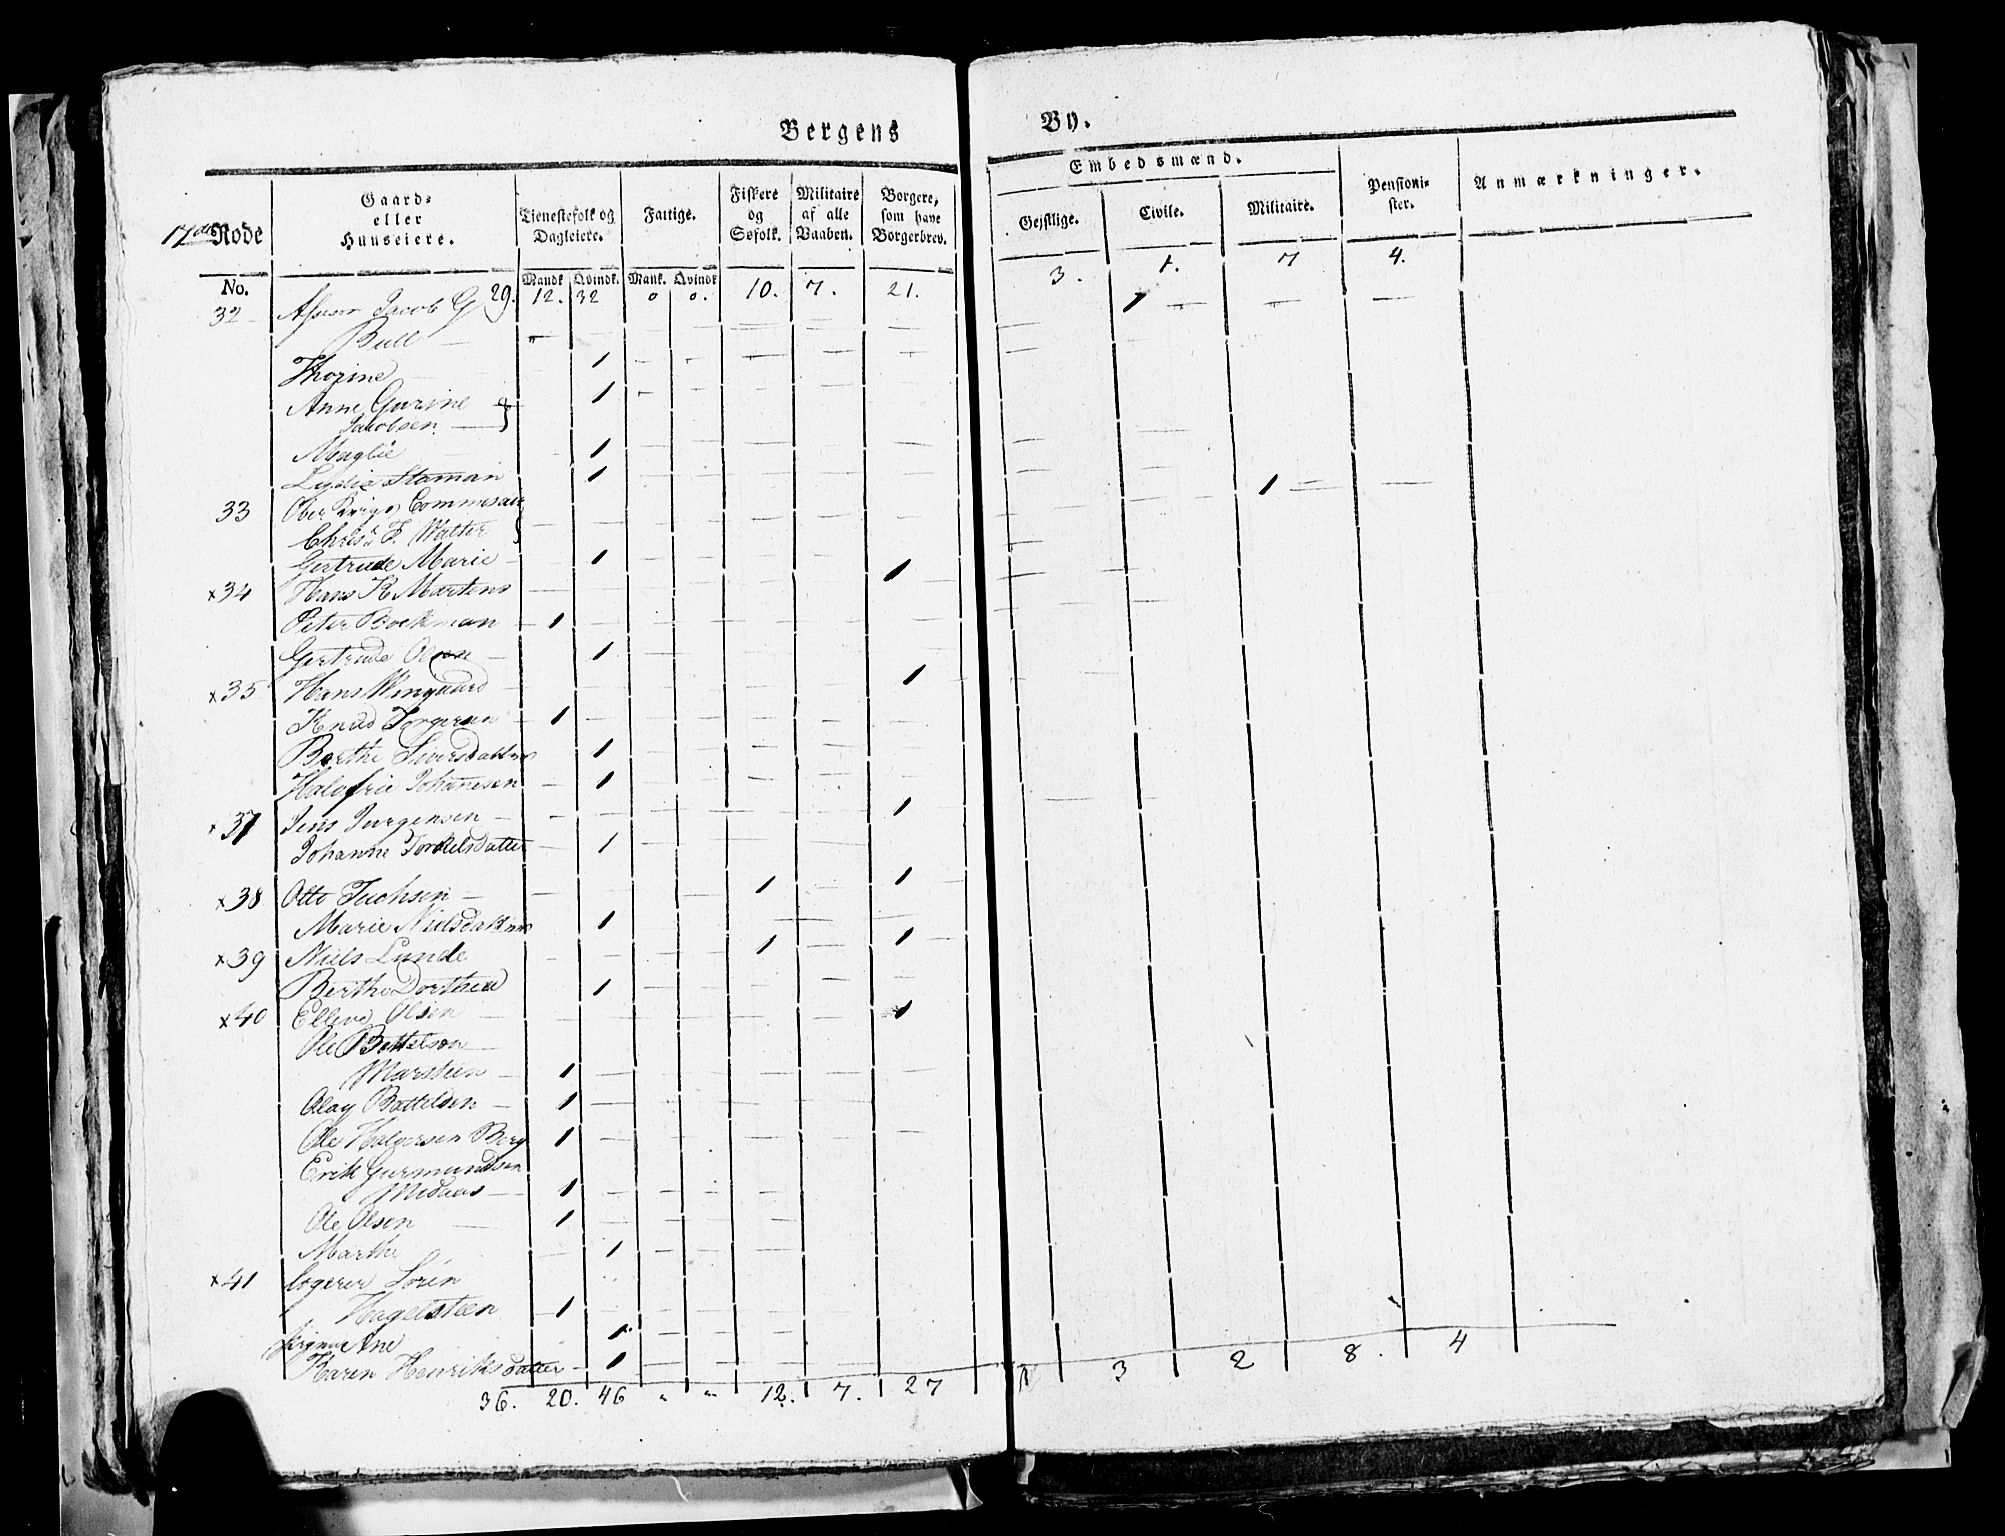 Bergens By.
17de Rode
Gaard-
eller
Huuseiere.
Tienestefolk og
Dagleiere.
Fattige.
Fiskere
og
Søfolk.
Militaire
af alle
Vaaben.
Borgere,
som have
Borgerbrev.
Embedsmænd.
Gejstlige.
Civile.
Militaire.
Pensioni-
ster.
Anmærkninger.
No.
Mandk Qvindk. Mank. Qvindk
29. 12. 32 0 0. 10. 7. 21. 3. 1. 7 4.
32 Assessor Jacob G
Bull — 1
Thorine 1
Anne Gurine
Jacobsen 1
Maglie 1
Lydia Staman 1
33 Ober Krigs Commisair
Chris. F. Walter 1
Gertrude Marie 1
x34 Hans K Martens 1
Peter Bockman 1
Gertrude Olsen 1
x35 Hans Wingaard 1
Knud Torgersen 1
Berthe Siversdatter 1
Johanesen 1
x37 Jens Jurgensen 1
Johanne Torkelsdatter 1
x38 Otto Tuchsen 1 1
Marie Nielsdatter 1
x39 Niels Lunde 1 1
Berthe Dorthea 1
x40 Ellevd Olsen 1
Ole Bottelson
Marsteen 1
Olay Bottelsen 1
Ole Halvorsen Berg 1
Erik Gurmundsen
Midaas 1
Ole Olsen 1
Marthe 1
x41 Lorén
Hagelsteen 1
Ane 1
Karen Henriksdatter 1
36. 20. 46 " " 12. 7. 27 3 2 8. 4